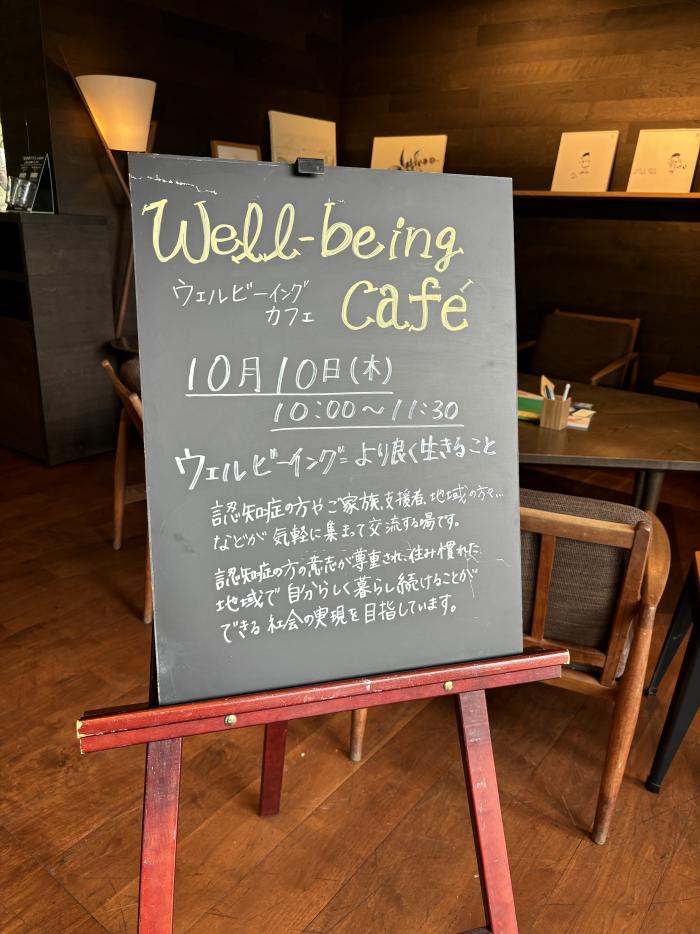 Well-being
ウェルビーイング
カフェ
Café
10月10日(木)
10:00～11:30
ウェルビーイング=より良く生きること
認知症の方やご家族、支援者、地域の方々…
などが気軽に集まって交流する場です。
認知症の方の意志が尊重され、住み慣れた
地域で自分らしく暮らし続けることが
できる社会の実現を目指しています。